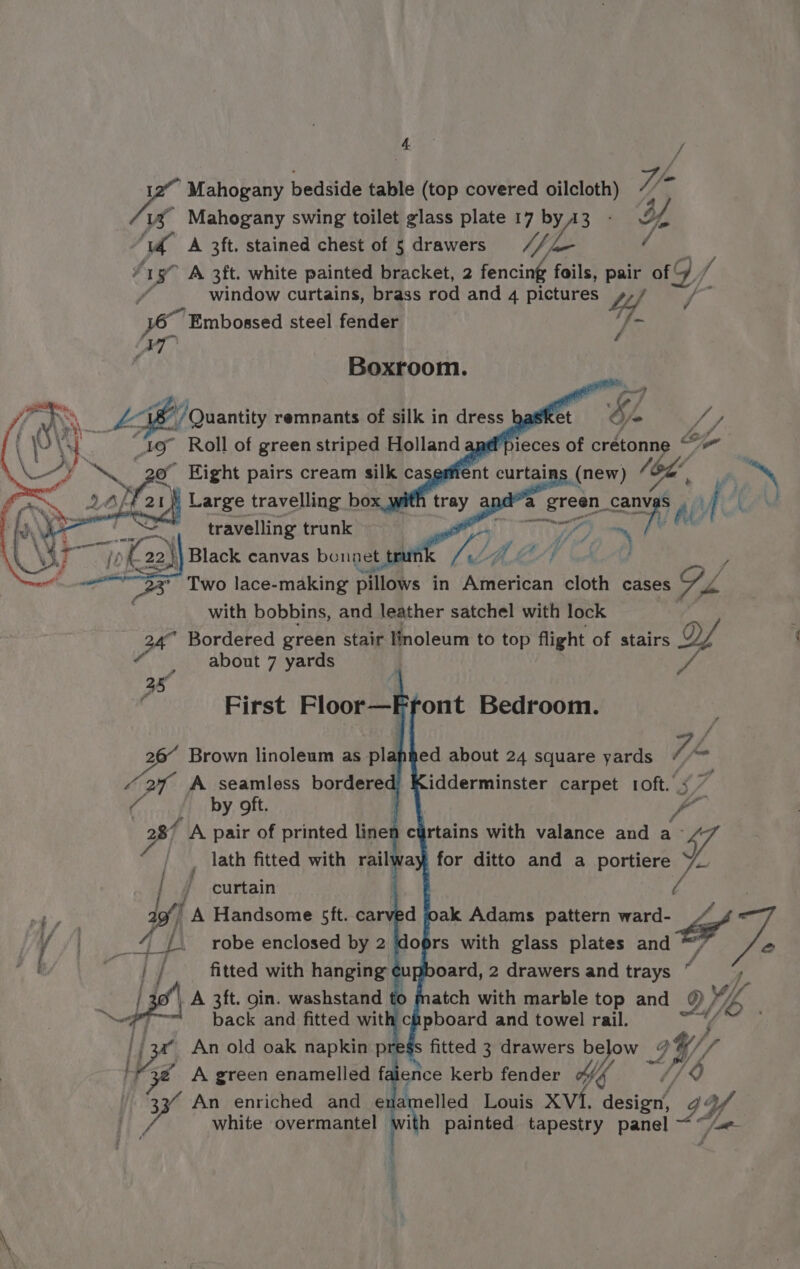 4
12 Mahogany bedside table (top covered oilcloth)
13 Mahogany swing toilet glass plate 17 by 13
14 A 3ft. stained chest of 5 drawers
15 A 3ft. white painted bracket, 2 fencing foils, pair of
window curtains, brass rod and 4 pictures
16 Embossed steel fender
17
Boxroom.
18 Quantity remnants of silk in dress basket
19 Roll of green striped Holland and pieces of cretonne
20 Eight pairs cream silk casement curtains (new)
21 Large travelling box with tray and a green canvas
travelling trunk
22 Black canvas bonnet trunk
23 Two lace-making pillows in American cloth cases
with bobbins, and leather satchel with lock
24 Bordered green stair linoleum to top flight of stairs
about 7 yards
25
First Floor—Front Bedroom.
26 Brown linoleum as planned about 24 square yards
27 A seamless bordered Kidderminster carpet 10ft.
by 9ft.
28 A pair of printed linen curtains with valance and a
lath fitted with railway for ditto and a portiere
curtain
29 A Handsome 5ft. carved oak Adams pattern ward-
robe enclosed by 2 doors with glass plates and
fitted with hanging cupboard, 2 drawers and trays
30 A 3ft. 9in. washstand to match with marble top and
back and fitted with cupboard and towel rail.
31 An old oak napkin press fitted 3 drawers below
32 A green enamelled faience kerb fender
33 An enriched and enamelled Louis XVI. design,
white overmantel with painted tapestry panel